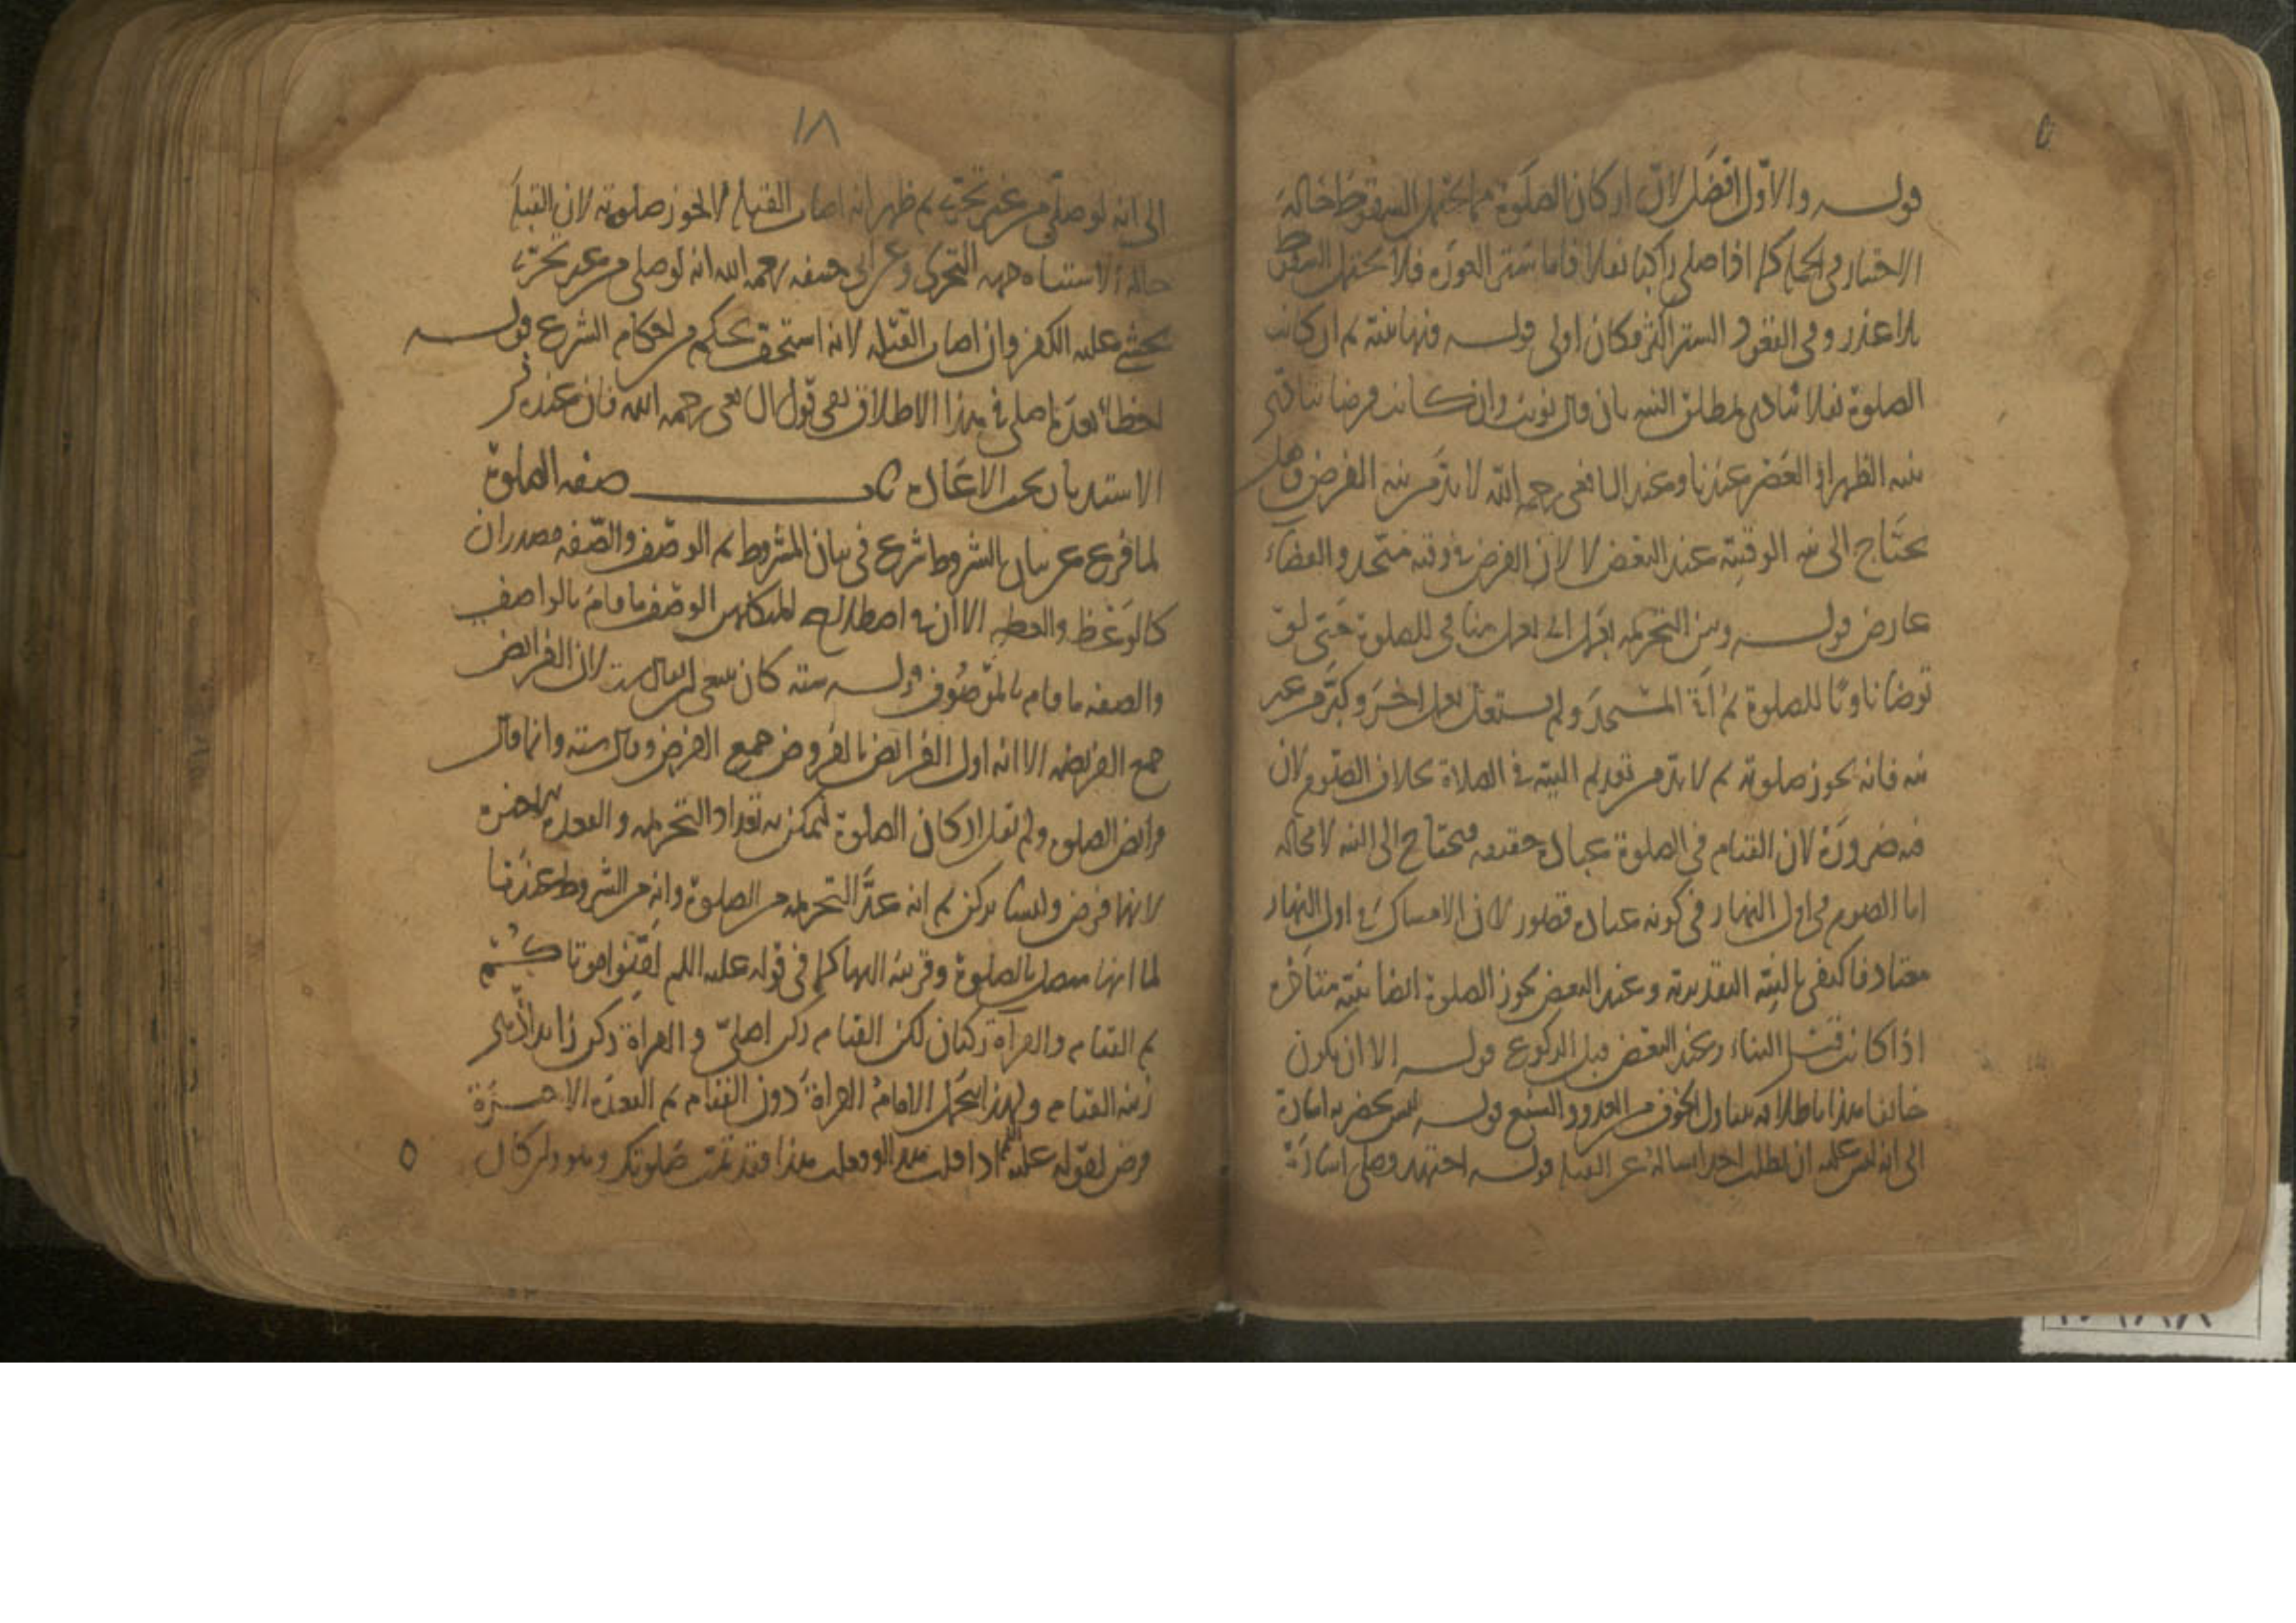 قوله والاول افضل لان اركان الصلوة مما يحتمل السقوط حالة
الاختيار في الجملة كما اذا صلى راكبا نفلا فاما ستر العورة فلا يحتمل السقوط
بلا عذر وفي القعود الستر اكثر فكان اولى قوله فيها بنية ثم ان كانت
الصلوة نفلا تتادى بمطلق النية بان قال نويت وان كانت فرضا تتادى
بنية الظهر او العصر عندنا وعند الشافعي رحمه الله لا بد من نية الفرض وهل
يحتاج الى نية الوقتية عند البعض لا لان الفرض في وقته متحد والقضاء
عارض قوله وبين التحريمة بعمل اي بعمل منافي للصلوة حتى لو
توضا ناويا للصلوة ثم اتى المسجد ولم يشتغل بعمل اخر وكبر من غير
نية فانه يجوز صلوته ثم لا بد من تقديم النية في الصلاة بخلاف الصوم لان
فيه ضرورة لان القيام في الصلوة عبادة حقيقة فيحتاج الى النية لا محالة
اما الصوم في اول النهار في كونه عبادة قصور لان الامساك في اول النهار
معتاد فاكتفى بالنية التقديرية وعند البعض يجوز الصلوة ايضا بنية متاخرة
اذا كانت قبل الثناء وعند البعض قبل الركوع قوله الا ان يكون
خائفا هذا باطلاقه يتناول الخوف من العدو والسبع قوله ليس بحضرته اشارة
الى انه ليس عليه ان يطلب احدا يساله عن القبلة قوله اجتهد وصلى اشارة
١٨
الى انه لو صلى من غير تحري ثم ظهر انه اصاب القبلة لا يجوز صلوته لان القبلة
حالة الاشتباه جهة التحري وعن ابي حنيفة رحمه الله انه لو صلى من غير تحري
يخشى عليه الكفر وان اصاب القبلة لانه استخف بحكم من احكام الشرع قوله
اخطأ بعد ما صلى في هذا الاطلاق نفي قول الشافعي رحمه الله فان عنده في
الاستدبار يجب الاعادة باب صفة الصلوة
لما فرغ عن بيان الشروط شرع في بيان المشروط ثم الوصف والصفة مصدران
كالوعظ والعظة الا ان في اصطلاح المتكلمين الوصف ما قام بالواصف
والصفة ما قام بالموصوف قوله ستة كان ينبغي ان يقال ست لان الفرائض
جمع الفريضة الا انه اول الفرائض بالفروض جمع الفرض وقال ستة وانما قال
فرائض الصلوة ولم يقل اركان الصلوة ليمكنه تعداد التحريمة والقعدة الاخيرة
لانهما فرض وليستا بركن ثم انه عد التحريمة من الصلوة وانه من الشروط عندنا
لما انها متصل بالصلوة وقريبة اليها كما في قوله عليه السلم لقنوا موتاكم
ثم القيام والقراة ركنان لكن القيام ركن اصلي والقراة ركن زائد لانها
زينة القيام ولهذا يتحمل الامام القراة دون القيام ثم القعدة الاخيرة
فرض لقوله عليه السلم اذا قلت هذا او فعلت هذا فقد تمت صلوتك